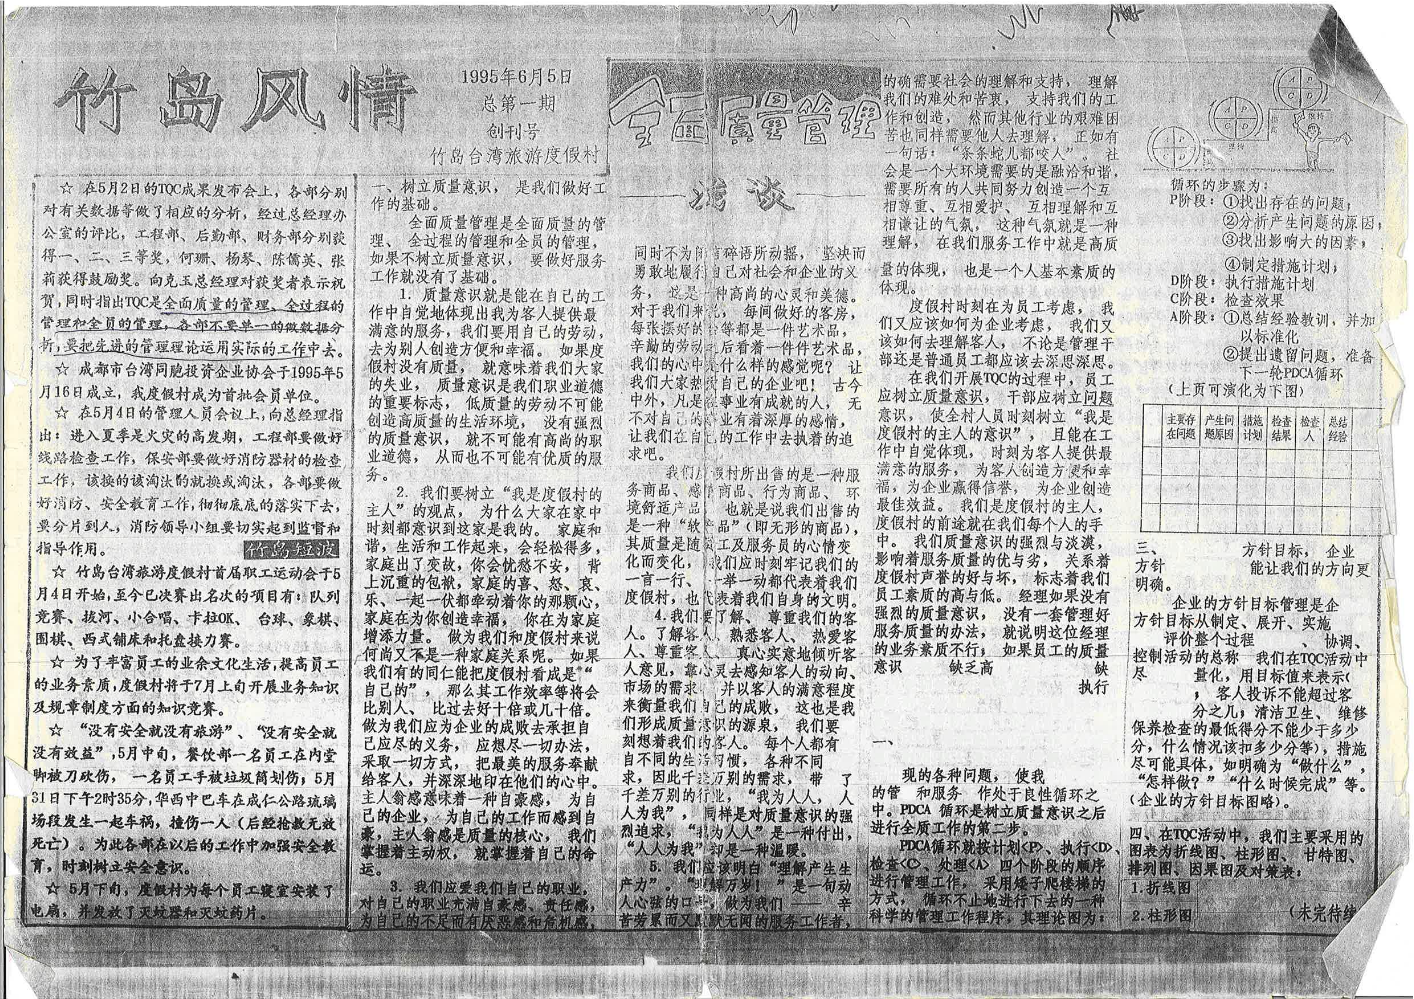 竹岛风情
1995年6月5日
总第一期
创刊号
竹岛台湾旅游度假村
☆ 在5月2日的TQC成果发布会上，各部分别
对有关数据等做了相应的分析，经过总经理办
公室的评比，工程部、后勤部、财务部分别获
得一、二、三等奖，何珊、杨琴、陈儒英、张
莉获得鼓励奖。向克玉总经理对获奖者表示祝
贺，同时指出TQC是全面质量的管理、全过程的
管理和全员的管理，各部不要单一的做数据分
析，要把先进的管理理论运用实际的工作中去。
☆ 成都市台湾同胞投资企业协会于1995年5
月16日成立，我度假村成为首批会员单位。
☆ 在5月4日的管理人员会议上，向总经理指
出：进入夏季是火灾的高发期，工程部要做好
线路检查工作，保安部要做好消防器材的检查
工作，该换的该淘汰的就换或淘汰，各部要做
好消防、安全教育工作，彻彻底底的落实下去，
要分片到人，消防领导小组要切实起到监督和
指导作用。
竹岛短波
☆ 竹岛台湾旅游度假村首届职工运动会于5
月4日开始，至今已决赛出名次的项目有：队列
竞赛、拔河、小合唱、卡拉OK、 台球、象棋、
围棋、西式铺床和托盘接力赛。
☆ 为了丰富员工的业余文化生活，提高员工
的业务素质，度假村将于7月上旬开展业务知识
及规章制度方面的知识竞赛。
☆ “没有安全就没有旅游”、“没有安全就
没有效益”，5月中旬，餐饮部一名员工在内堂
脚被刀砍伤， 一名员工手被垃圾筒划伤；5月
31日下午2时35分，华西中巴车在成仁公路琉璃
场段发生一起车祸，撞伤一人（后经抢救无效
死亡）。为此各部在以后的工作中加强安全教
育，时刻树立安全意识。
☆ 5月下旬，度假村为每个员工寝室安装了
电扇，并发放了灭蚊器和灭蚊药片。
全面质量管理
浅谈
一、树立质量意识， 是我们做好工
作的基础。
全面质量管理是全面质量的管
理、 全过程的管理和全员的管理，
如果不树立质量意识， 要做好服务
工作就没有了基础。
1. 质量意识就是能在自己的工
作中自觉地体现出我为客人提供最
满意的服务，我们要用自己的劳动，
去为别人创造方便和幸福。 如果度
假村没有质量， 就意味着我们大家
的失业， 质量意识是我们职业道德
的重要标志， 低质量的劳动不可能
创造高质量的生活环境， 没有强烈
的质量意识， 就不可能有高尚的职
业道德， 从而也不可能有优质的服
务。
2. 我们要树立“我是度假村的
主人”的观点， 为什么大家在家中
时刻都意识到这家是我的。 家庭和
谐，生活和工作起来，会轻松得多，
家庭出了变故，你会忧愁不安， 背
上沉重的包袱，家庭的喜、怒、哀、
乐、一起一伏都牵动着你的那颗心，
家庭在为你创造幸福， 你在为家庭
增添力量。 做为我们和度假村来说
何尚又不是一种家庭关系呢。 如果
我们有的同仁能把度假村看成是“
自己的”， 那么其工作效率等将会
比别人、 比过去好十倍或几十倍。
做为我们应为企业的成败去承担自
己应尽的义务， 应想尽一切办法，
采取一切方式， 把最美的服务奉献
给客人，并深深地印在他们的心中。
主人翁感意味着一种自豪感， 为自
己的企业， 为自己的工作而感到自
豪，主人翁感是质量的核心， 我们
掌握着主动权， 就掌握着自己的命
运。
3. 我们应爱我们自己的职业，
对自己的职业充满自豪感、责任感，
为自己的不足而有厌恶感和危机感，
同时不为闲言碎语所动摇， 坚决而
勇敢地履行自己对社会和企业的义
务， 这是一种高尚的心灵和美德。
对于我们来说， 每间做好的客房，
每张摆好的台等都是一件艺术品，
辛勤的劳动之后看着一件件艺术品，
我们的心中是什么样的感觉呢？ 让
我们大家热爱自己的企业吧！ 古今
中外，凡是在事业有成就的人， 无
不对自己的事业有着深厚的感情，
让我们在自己的工作中去执着的追
求吧。
我们度假村所出售的是一种服
务商品、感情商品、行为商品、 环
境舒适产品 也就是说我们出售的
是一种“软产品”（即无形的商品），
其质量是随员工及服务员的心情变
化而变化，我们应时刻牢记我们的
一言一行、 一举一动都代表着我们
度假村，也代表着我们自身的文明。
4.我们要了解、 尊重我们的客
人。了解客人、熟悉客人、 热爱客
人、尊重客人，真心实意地倾听客
人意见，靠心灵去感知客人的动向、
市场的需求， 并以客人的满意程度
来衡量我们自己的成败， 这也是我
们形成质量意识的源泉， 我们要
刻想着我们的客人。 每个人都有
自不同的生活习惯， 各种不同
求，因此千差万别的需求， 带 了
千差万别的行业，“我为人人， 人
人为我”， 同样是对质量意识的强
烈追求，“我为人人”是一种付出，
“人人为我”却是一种温暖。
5. 我们应该明白“理解产生生
产力”。“理解万岁！ ”是一句动
人心弦的口号，做为我们 —— 辛
苦劳累而又默默无闻的服务工作者，
的确需要社会的理解和支持， 理解
我们的难处和苦衷， 支持我们的工
作和创造， 然而其他行业的艰难困
苦也同样需要他人去理解， 正如有
一句话：“条条蛇儿都咬人”。 社
会是一个大环境需要的是融洽和谐，
需要所有的人共同努力创造一个互
相尊重、互相爱护、 互相理解和互
相谦让的气氛， 这种气氛就是一种
理解， 在我们服务工作中就是高质
量的体现， 也是一个人基本素质的
体现。
度假村时刻在为员工考虑， 我
们又应该如何为企业考虑， 我们又
该如何去理解客人， 不论是管理干
部还是普通员工都应该去深思深思。
在我们开展TQC的过程中，员工
应树立质量意识， 干部应树立问题
意识， 使全村人员时刻树立“我是
度假村的主人的意识”， 且能在工
作中自觉体现， 时刻为客人提供最
满意的服务， 为客人创造方便和幸
福，为企业赢得信誉， 为企业创造
最佳效益。 我们是度假村的主人，
度假村的前途就在我们每个人的手
中。 我们质量意识的强烈与淡漠，
影响着服务质量的优与劣， 关系着
度假村声誉的好与坏， 标志着我们
员工素质的高与低。 经理如果没有
强烈的质量意识， 没有一套管理好
服务质量的办法， 就说明这位经理
的业务素质不行； 如果员工的质量
意识 缺乏高 缺
执行
一、
现的各种问题， 使我
的管 和服务 作处于良性循环之
中。PDCA 循环是树立质量意识之后
进行全质工作的第二步。
PDCA循环就按计划<P>、执行<D>、
检查<C>、处理<A> 四个阶段的顺序
进行管理工作， 采用矮子爬楼梯的
方式， 循环不止地进行下去的一种
科学的管理工作程序，其理论图为：
循环的步骤为：
P阶段： ①找出存在的问题；
②分析产生问题的原因；
③找出影响大的因素；
④制定措施计划；
D阶段：执行措施计划
C阶段：检查效果
A阶段：①总结经验教训，并加
以标准化
②提出遗留问题，准备
下一轮PDCA循环
（上页可演化为下图）
主要存在问题 产生问题原因 措施计划 检查结果 检查人 总结经验
三、 方针目标， 企业
方针 能让我们的方向更
明确。
企业的方针目标管理是企
方针目标从制定、展开、实施
评价整个过程 、协调、
控制活动的总称 我们在TQC活动中
尽 量化，用目标值来表示(
， 客人投诉不能超过客
分之几；清洁卫生、 维修
保养检查的最低得分不能少于多少
分，什么情况该扣多少分等)， 措施
尽可能具体，如明确为“做什么”，
“怎样做？” “什么时候完成”等。
(企业的方针目标图略)。
四、在TQC活动中，我们主要采用的
图表为折线图、柱形图、 甘特图、
排列图、因果图及对策表：
1.折线图
2.柱形图
（未完待续